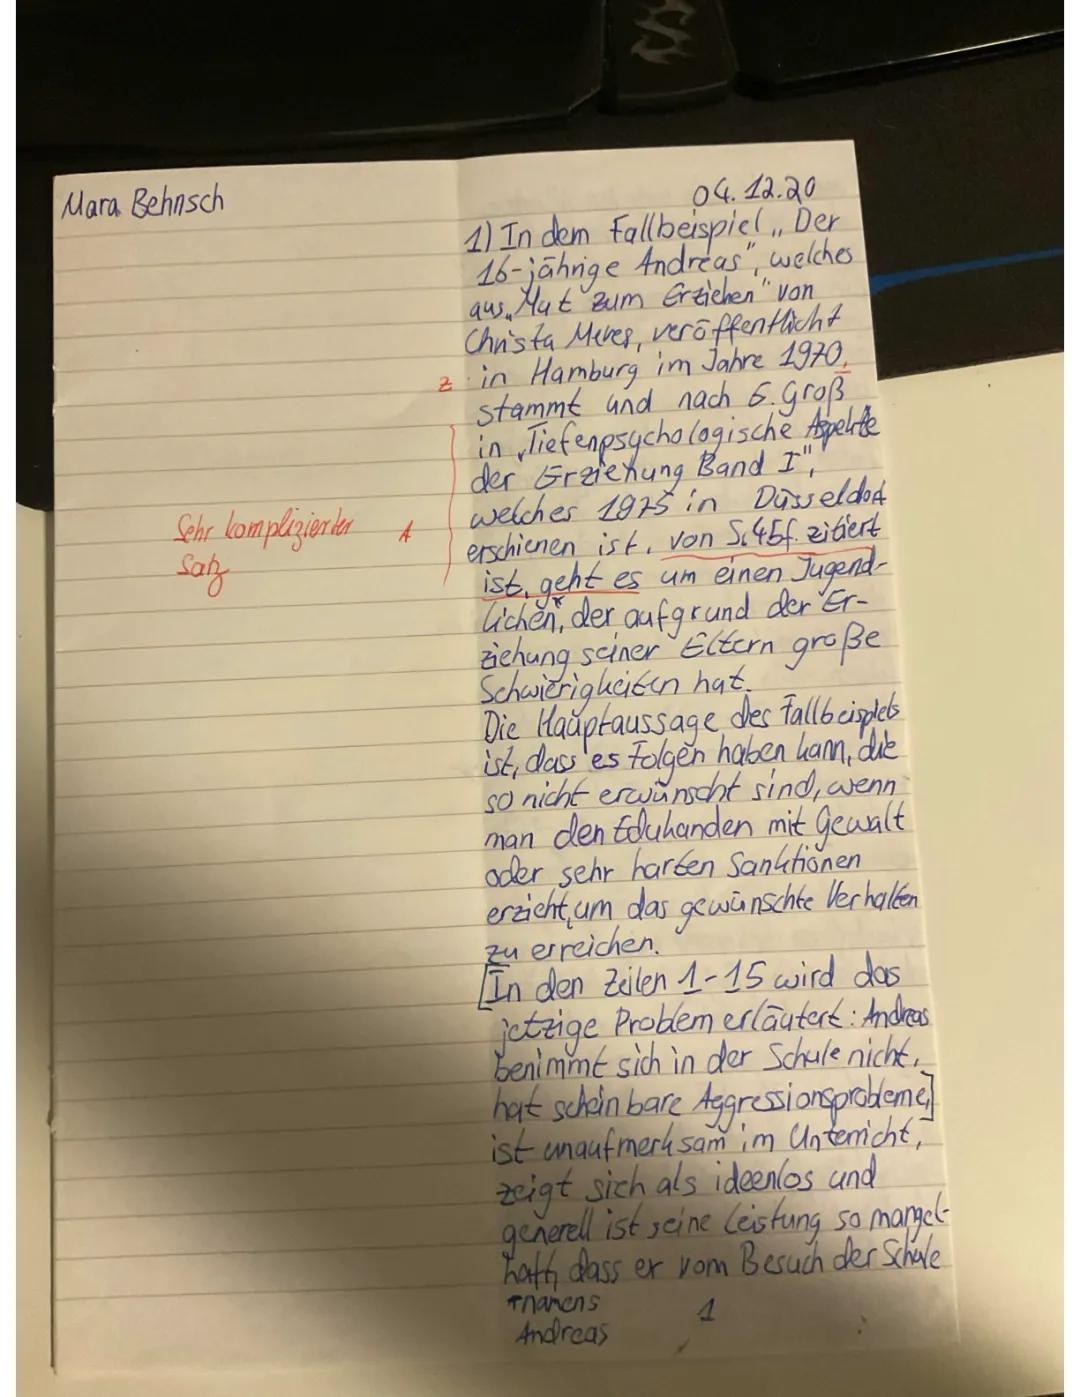 Mara Behnsch
04.12.20
1) In dem Fallbeispiel „Der
16-jährige Andreas", welches
aus „Mut zum Erziehen" von
Christa Meves, veröffentlicht
z in Hamburg im Jahre 1970,
stammt und nach G. Groß
in „Tiefenpsychologische Aspekte
der Erziehung Band I",
welches 1975 in Düsseldorf
Sehr komplizierter A
Satz
erschienen ist, von S.45f. zitiert
ist, geht es um einen Jugend-
lichen*, der aufgrund der Er-
ziehung seiner Eltern große
Schwierigkeiten hat.
Die Hauptaussage des Fallbeispiels
ist, dass es Folgen haben kann, die
so nicht erwünscht sind, wenn
man den Edukanden mit Gewalt
oder sehr harten Sanktionen
erzieht, um das gewünschte Verhalten
zu erreichen.
[In den Zeilen 1-15 wird das
jetzige Problem erläutert: Andreas
benimmt sich in der Schule nicht,
hat scheinbare Aggressionsprobleme,]
ist unaufmerksam im Unterricht,
zeigt sich als ideenlos und
generell ist seine Leistung so mangel-
haft, dass er vom Besuch der Schule
*namens
Andreas
1